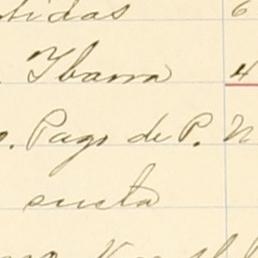 tidas 6
Ibarra 4
o. Pago de P. N
susta